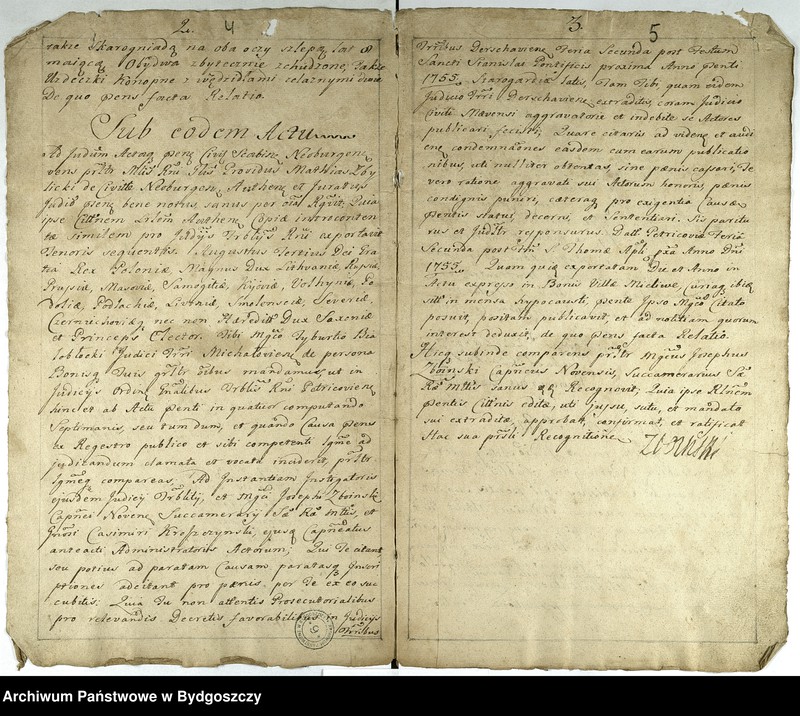 2. 4
także Skarogniadą na oba oczy szlepą lat 8
maiącą Obydwa zbytecznie zchudzone, także
Uzdeczki Konopne z wędzidłami żelaznymi dwie
De quo pens facta Relatio.
Sub eodem Actu
Ad Judūm Actaq penē Civīl Scabin Neoburgen
vens prsttr Mtis Rnī Grlis Providus Mathias Zby
licki de Civitte Neoburgen Authen et Juratus
Judiō penq bene notus, sanus per oīa Rgvit; Quia
ipse Cittnem Lrlem Authen Copiæ introconten
tæ similem pro Judijs Trblijs Rnī exportavit
Tenoris sequentis. Augustus Tertius Dei Gra
tia Rex Poloniæ, Magnus Dux Lithvaniæ Russiæ
Prussiæ, Masoviæ, Samogitiæ, Kijoviæ, Volhyniæ, Po
doliæ Podlachiæ, Livoniæ, Smolensciæ, Severiæ,
Czernichoviæq nec non Hæreditr Dux Saxoniæ
et Princeps Elector. Tibi Mgco Tyburtio Bia
łobłocki Judici Trri Michalovien de persona
Bonisq Tuis grltr ōibus mandamus, ut in
Judicijs Ordin Gnalibus Trblis Rnī Petricovien
hinc et ab Actu pentī in quatuor computando
Septimanis, seu tum dum, et quando Causa pens
ex Regestro publico et sibi competenti Igme ad
judicandum clamata et vocata inciderit, prsttr
Igmeq compareas. Ad Instantiam Instigatoris
ejusdem Judicij Trblity, et Mgci Josephi Zboinski
Capnei Noven Succamerarij Sæ Ræ Mtis, et
Gnosi Casimiri Kroszczynski, ejusq Capneatus
anteacti Administratoris Actorum; Qui Te citant
seu potius ad paratam Causam paratasq Inscri
ptiones adcitant pro pænis, per Te ex eo suc
cubitis; Quia Tu non attentis Prosecutorialibus
pro relevandis Decretis favorabilibus in Judicijs
Trribus
3. 5
Trribus Derschavien Feria Secunda post Festum
Sancti Stanislai Pontificis proxima Anno penti
1755. Starogardiæ latis, Tam Tibi, quam eidem
Judicio Trri Derschavien extraditis, coram Judicio
Civili Skavensi aggravatorie et indebite se Actores
publicari fecisti; Quare citaris ad videnq et audi
enq condemnaōnes easdem cum earum publicatio
nibus, uti nulliter obtentas, sine pænis cassari, Te
vero ratione aggravati sui Actorum honoris, pænis
condignis puniri, cæteraq pro exigentia Causæ
pentis statui, decerni, et sententiari. Sis paritu
rus et Juditr responsurus. Datt Petricoviæ Feria
Secunda post Fttm S. Thomæ Apli pxa Anno Dni
1755. Quam quia exportatam Die et Anno in
Actu expresso in Bonis Villæ Milewe, curiaq ibiq
sitt in mensa hypocausti, pente ipso Mgco Citato
posuit, positam publicavit, et ad notitiam quorum
interest deduxit, de quo pens facta Relatio.
Hicq subinde comparens prsttr Mgcus Josephus
Zboinski Capneus Novensis, Succamerarius Sæ
Ræ Mttis sanus Recognovit; Quia ipse Rlnem
pentis Cittnis edita, uti jussu, sutu, et mandato
sui extraditæ, approbat, confirmat, et ratificat
Hac sua prsti Recognitione
Zboinski
Archiwum Państwowe w Bydgoszczy